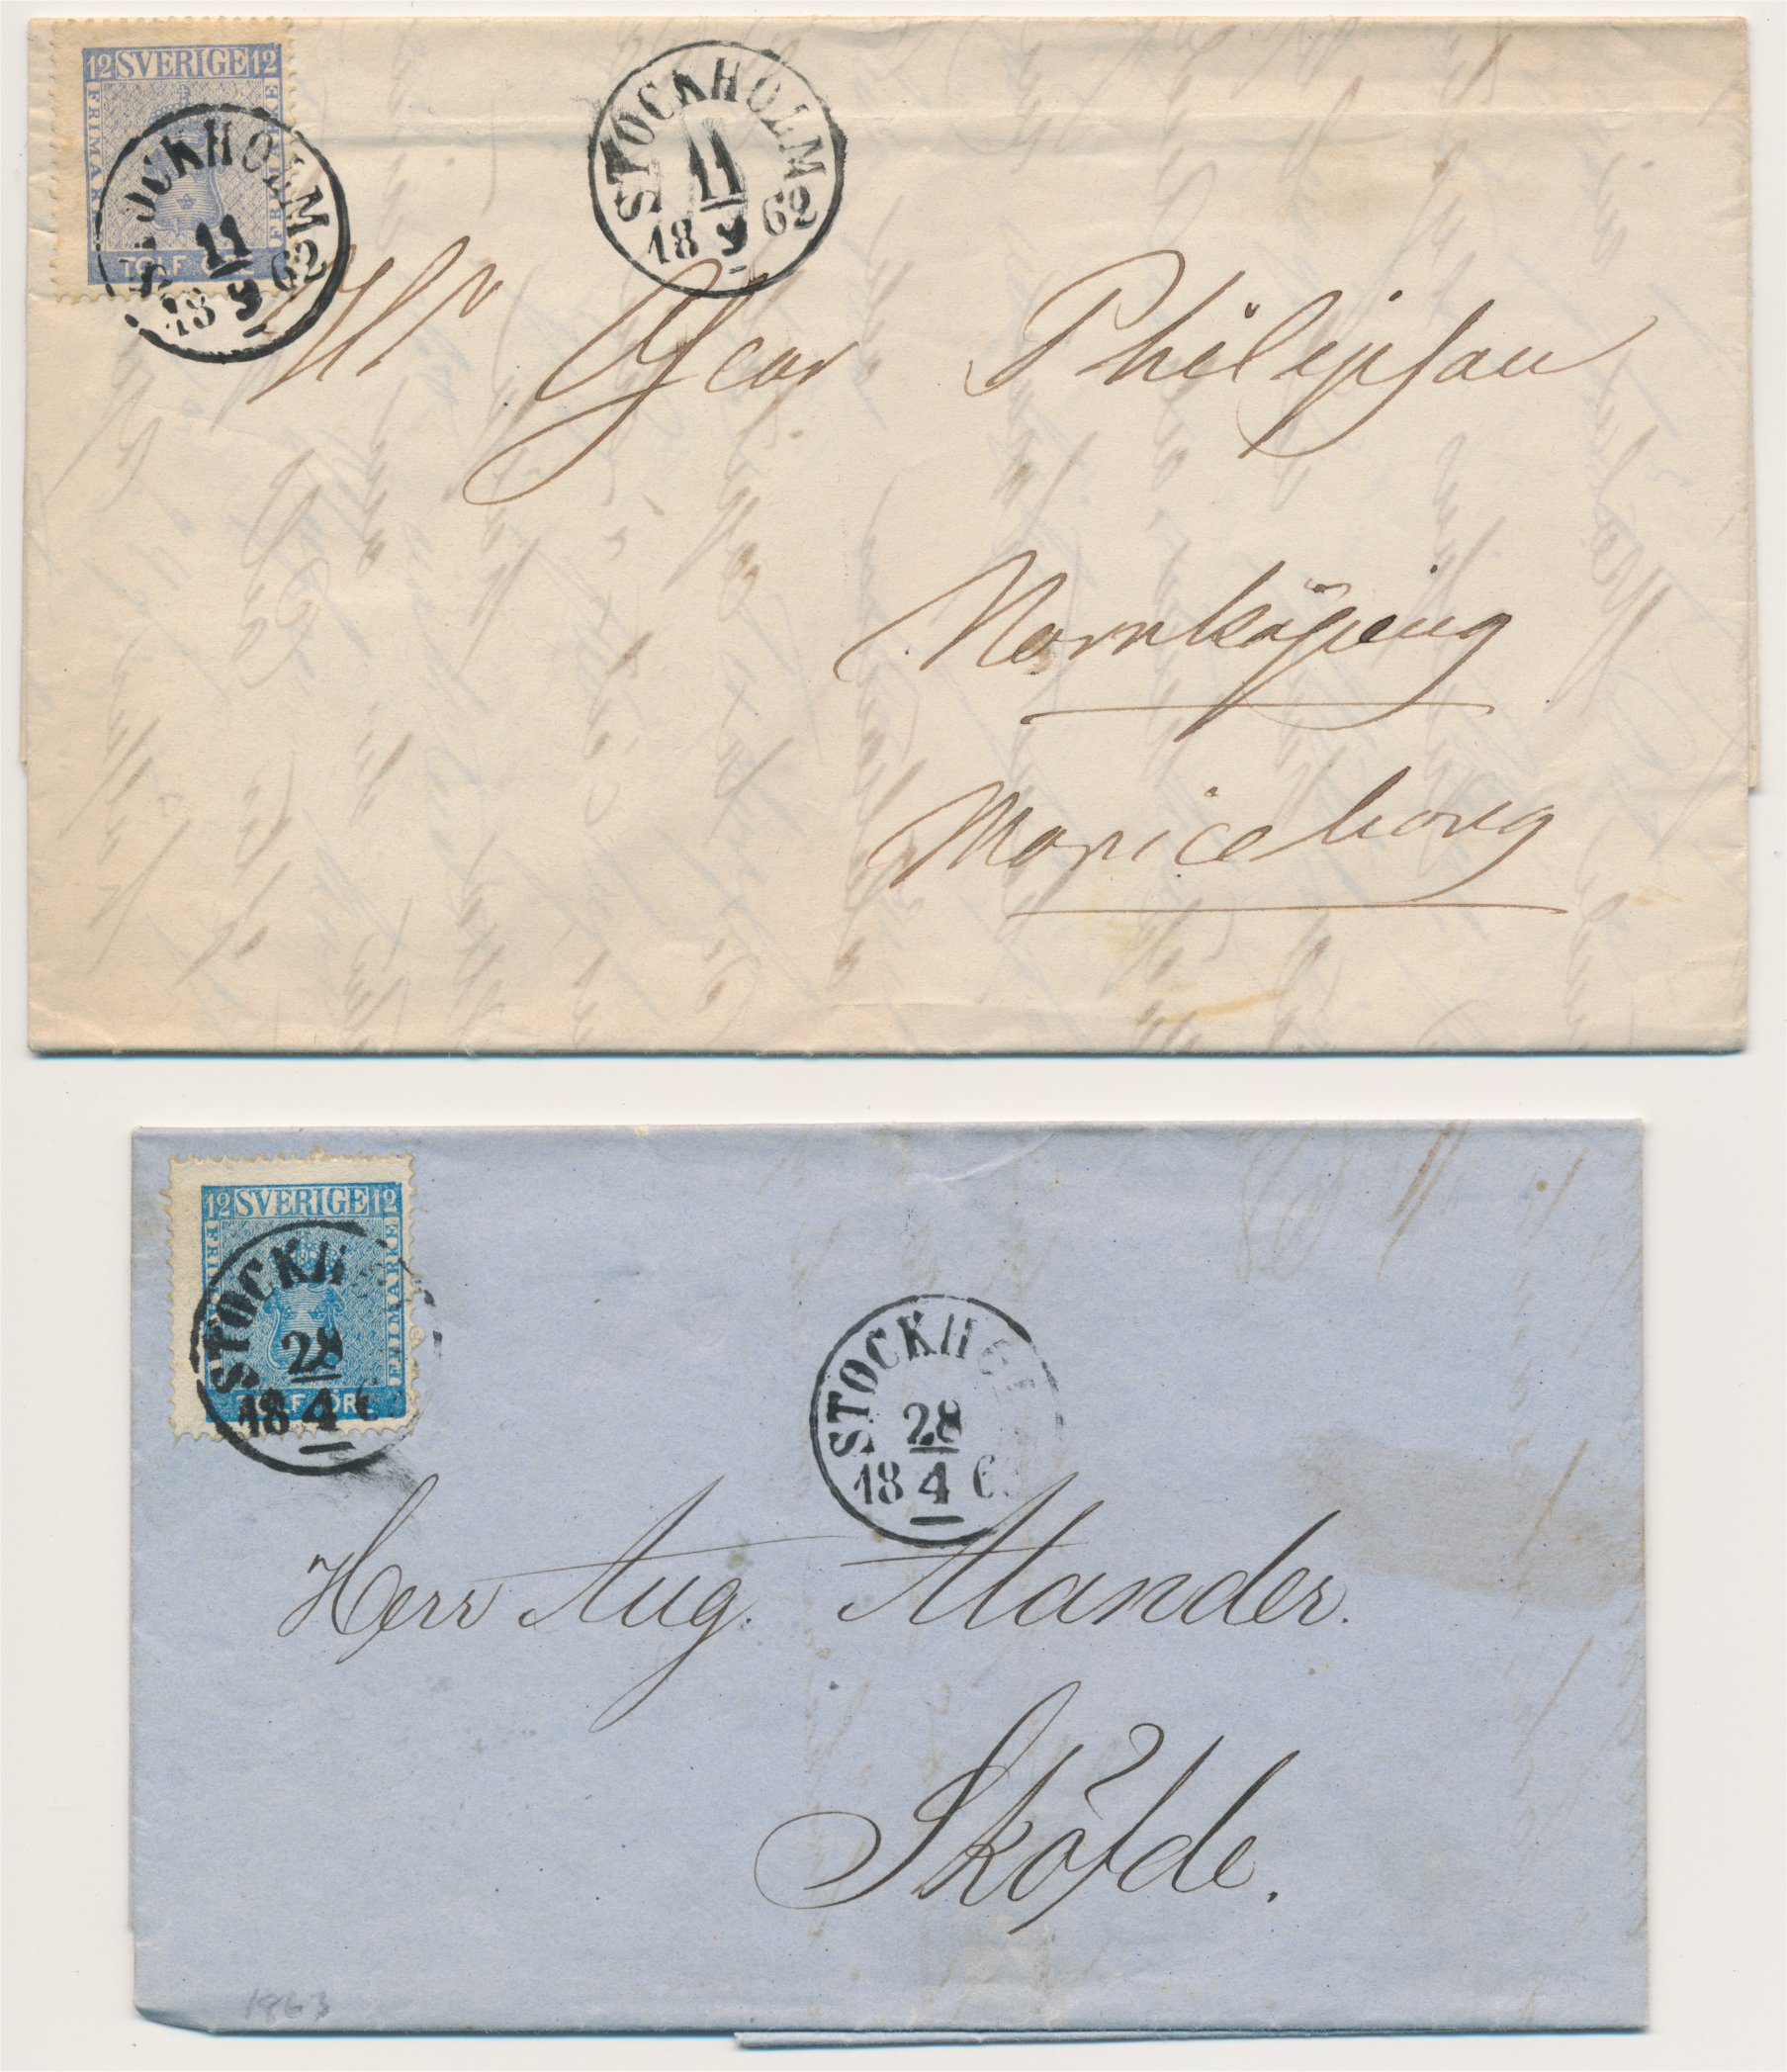 12 SVERIGE 12
FRIMÄRKE
FRIMÄRKE
TOLF ÖRE
STOCKHOLM
11
18 9 62
STOCKHOLM
11
18 9 62
Hr Oscar Philipson
Norrköping
Moriceborg
12 SVERIGE 12
FRIMÄRKE
FRIMÄRKE
TOLF ÖRE
STOCKHOL
28
18 4 6
STOCKHOL
28
18 4 6
Herr Aug. Alander.
Sköfde.
1863